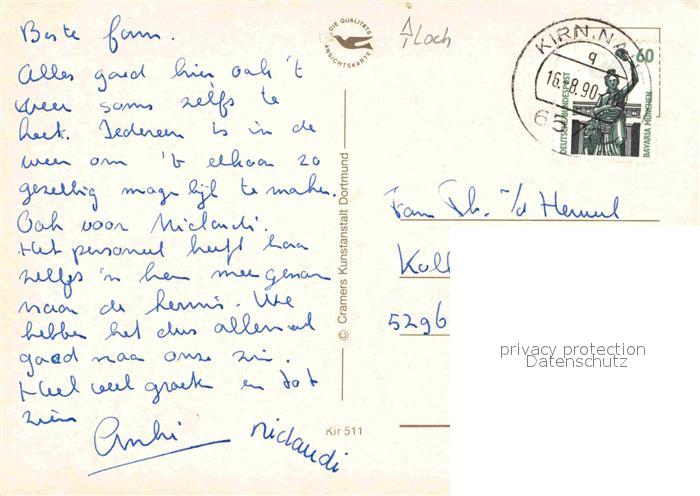 Beste fam.
Alles goed hier ook 't
weer soms zelfs te
heet. Iedereen is in de
weer om 't elkaar zo
gezellig mogelijk te maken.
Ook voor Niclandi.
Het personeel heeft haar
zelfs 'n keer meegenomen
naar de kermis. We
hebben het dus allemaal
goed naar onze zin.
Heel veel groeten en tot
ziens
Niclandi
DIE QUALITÄTS
ANSICHTSKARTE
Loch
KIRN, NA
q
16.-8.90-
60
DEUTSCHE BUNDESPOST
BAVARIA MÜNCHEN
© Cramers Kunstanstalt Dortmund
Kir 511
Fam Th. v/d Heuvel
5296
privacy protection
Datenschutz